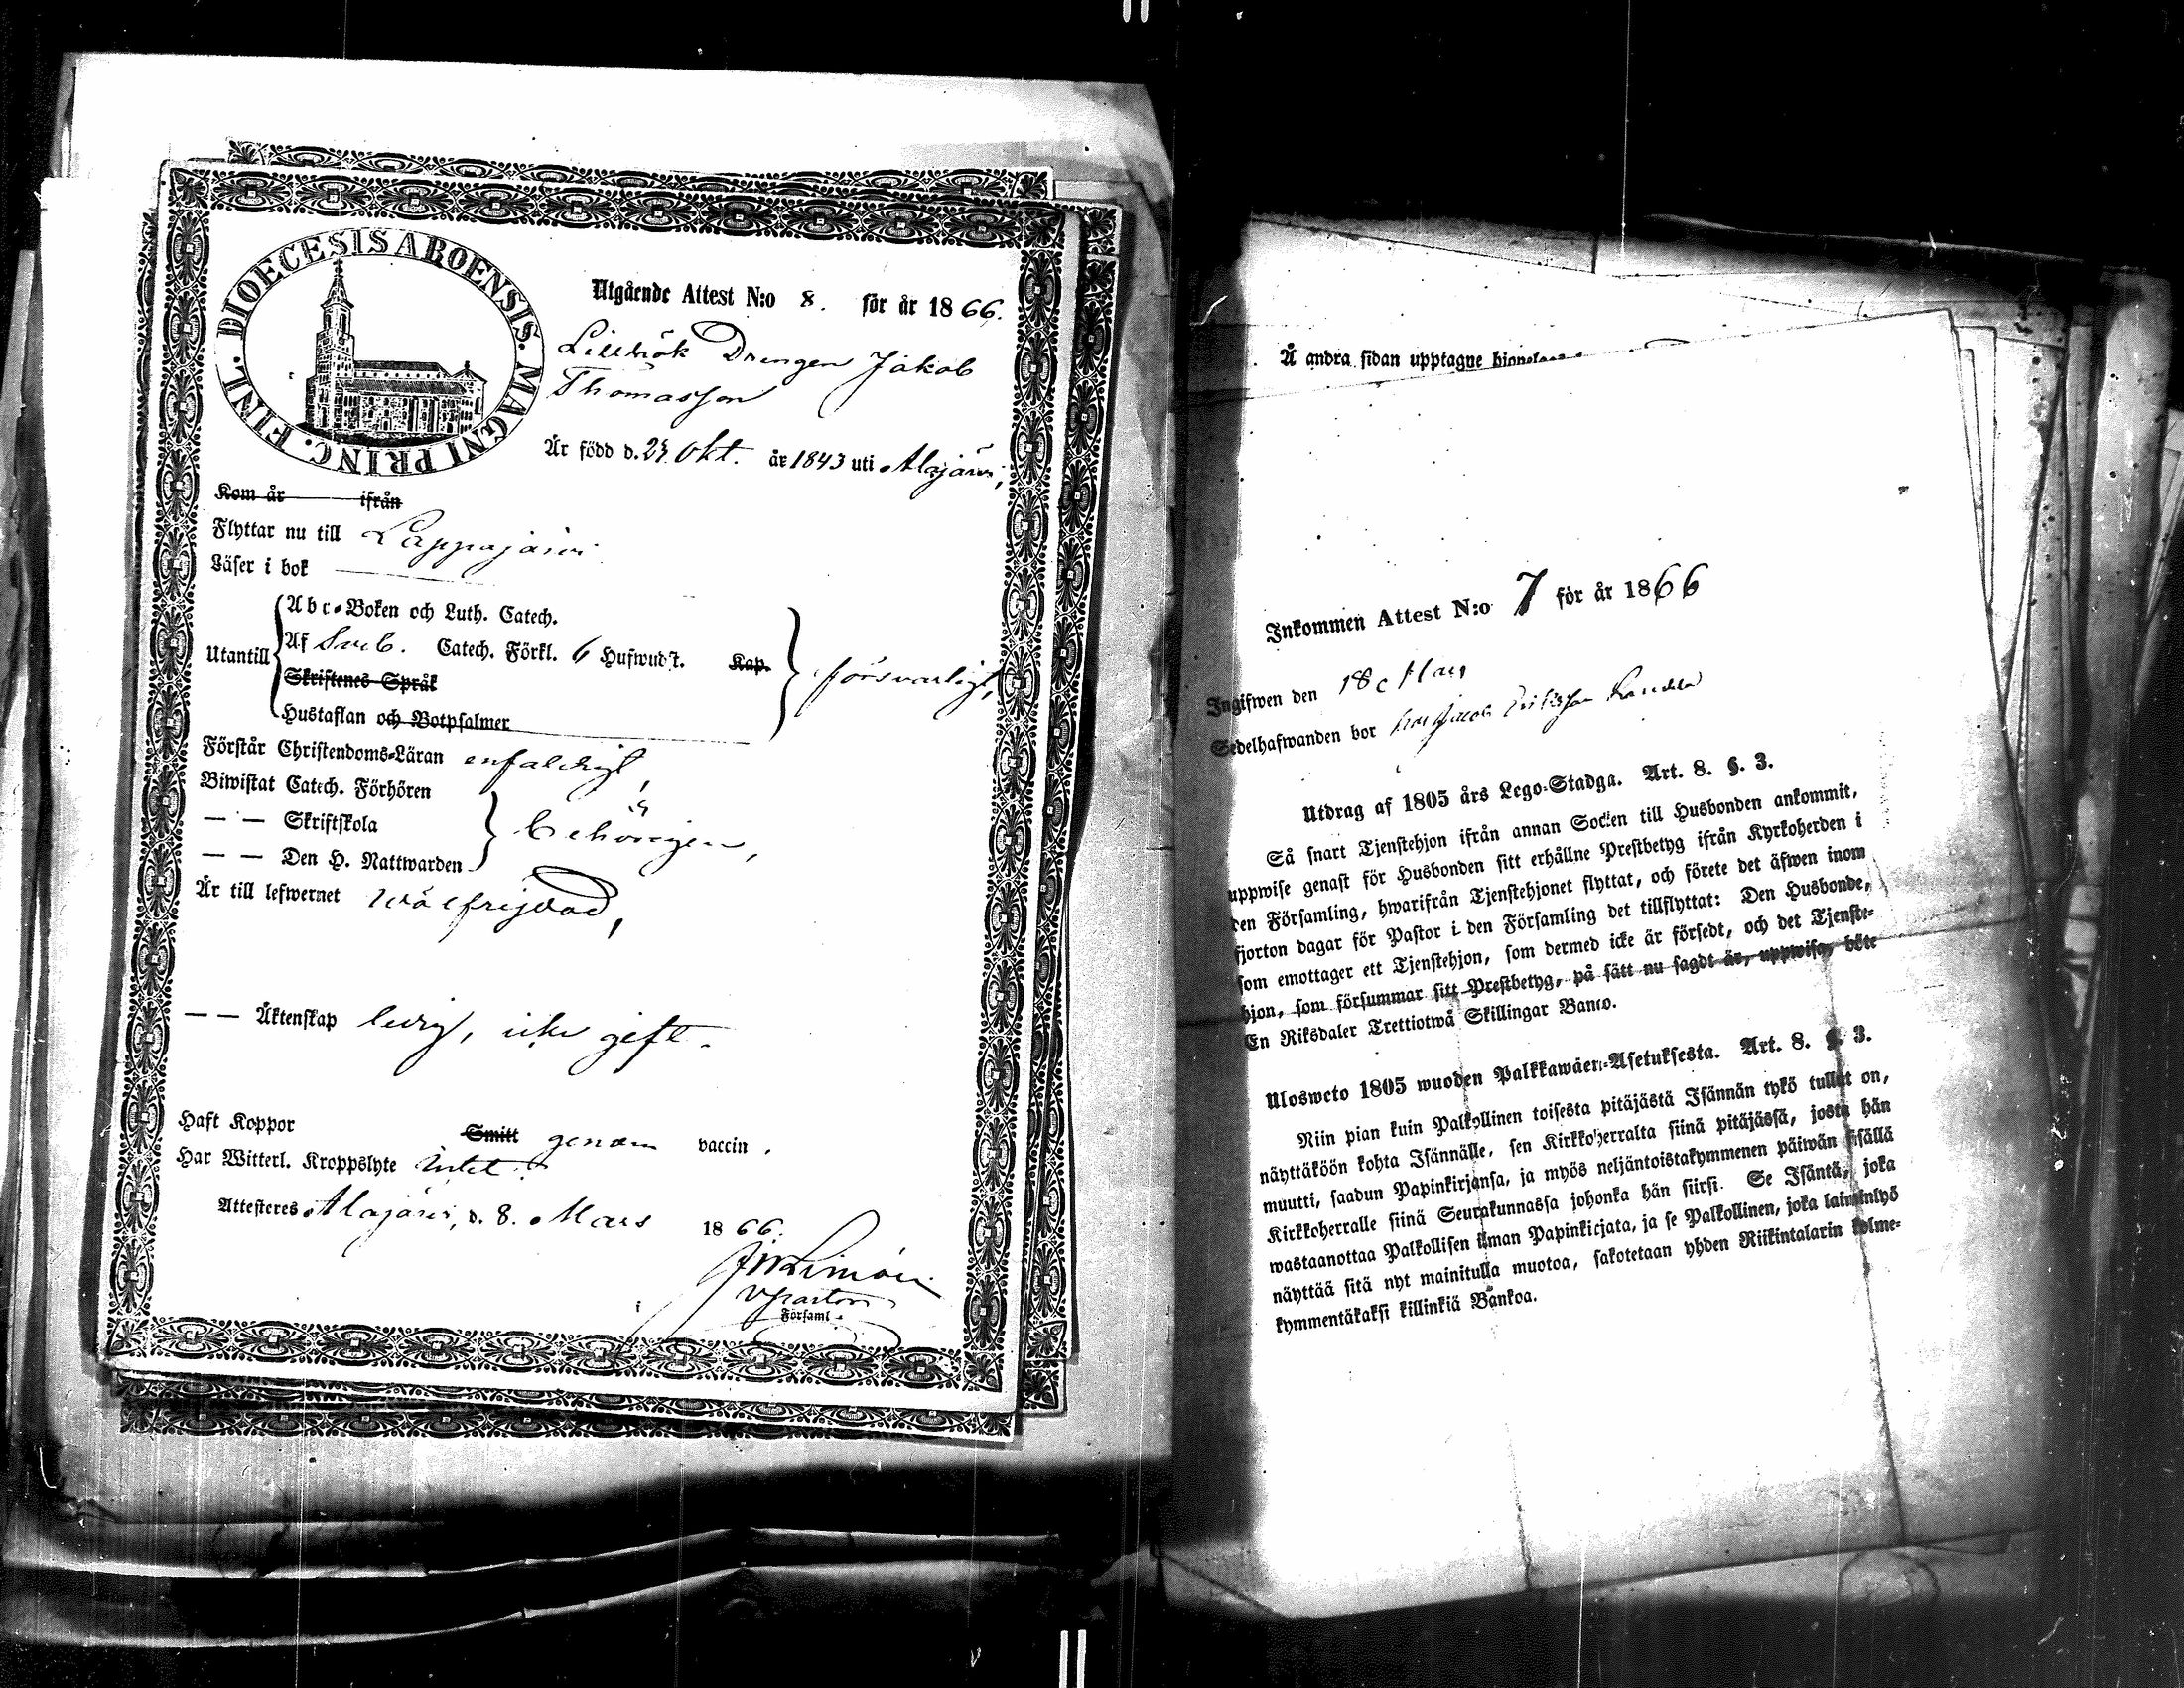 DIOECESIS ABOENSIS. MAGNI PRINC. FINL.
Utgående Attest N:o 8. för år 1866.
Drengen Jakob
Thomasson
Är född d. Okt. år 1843 uti Alajärvi,
Kom år ifrån
Flyttar nu till Lappajärvi
Läser i bok
Abc-Boken och Luth. Catech.
Utantill Af Sveb. Catech. Förkl. 6 Hufwud Kap. försvarligt,
Skriftenes Språk
Hustaflan och Botpsalmer
Förstår Christendoms-Läran enfaldigt,
Biwistat Catech. Förhören
— — Skriftskola behörigen,
— — Den H. Nattwarden
Är till lefwernet wälfrejdad,
— — Äktenskap ledig, icke gift.
Haft Koppor Smitt genom vaccin.
Har Witterl. Kroppslyte intet.
Attesteres Alajärvi, d. 8. Mars 1866.
Församl.
Å andra sidan upptagne
Inkommen Attest N:o 7 för år 1866
Ingifwen den 18 Mars
Sedelhafwanden bor
Utdrag af 1805 års Lego-Stadga. Art. 8. §. 3.
Så snart Tjenstehjon ifrån annan Socken till Husbonden ankommit,
uppwise genast för Husbonden sitt erhållne Prestbetyg ifrån Kyrkoherden i
den Församling, hwarifrån Tjenstehjonet flyttat, och förete det äfwen inom
fjorton dagar för Pastor i den Församling det tillflyttat: Den Husbonde,
som emottager ett Tjenstehjon, som dermed icke är försedt, och det Tjenste-
hjon, som försummar sitt Prestbetyg, på sätt nu sagdt är, uppwisa, böte
En Riksdaler Trettiotwå Skillingar Banco.
Ulosweto 1805 wuoden Palkkawäen-Asetuksesta. Art. 8. §. 3.
Niin pian kuin Palkollinen toisesta pitäjästä Isännän tykö tullut on,
näyttäköön kohta Isännälle, sen Kirkkoherralta siinä pitäjässä, josta hän
muutti, saadun Papinkirjansa, ja myös neljäntoistakymmenen päiwän sisällä
Kirkkoherralle siinä Seurakunnassa johonka hän siirsi. Se Isäntä, joka
wastaanottaa Palkollisen ilman Papinkirjata, ja se Palkollinen, joka laiminlyö
näyttää sitä nyt mainitulla muotoa, sakotetaan yhden Riikintalarin kolme-
kymmentäkaksi killinkiä Bankoa.